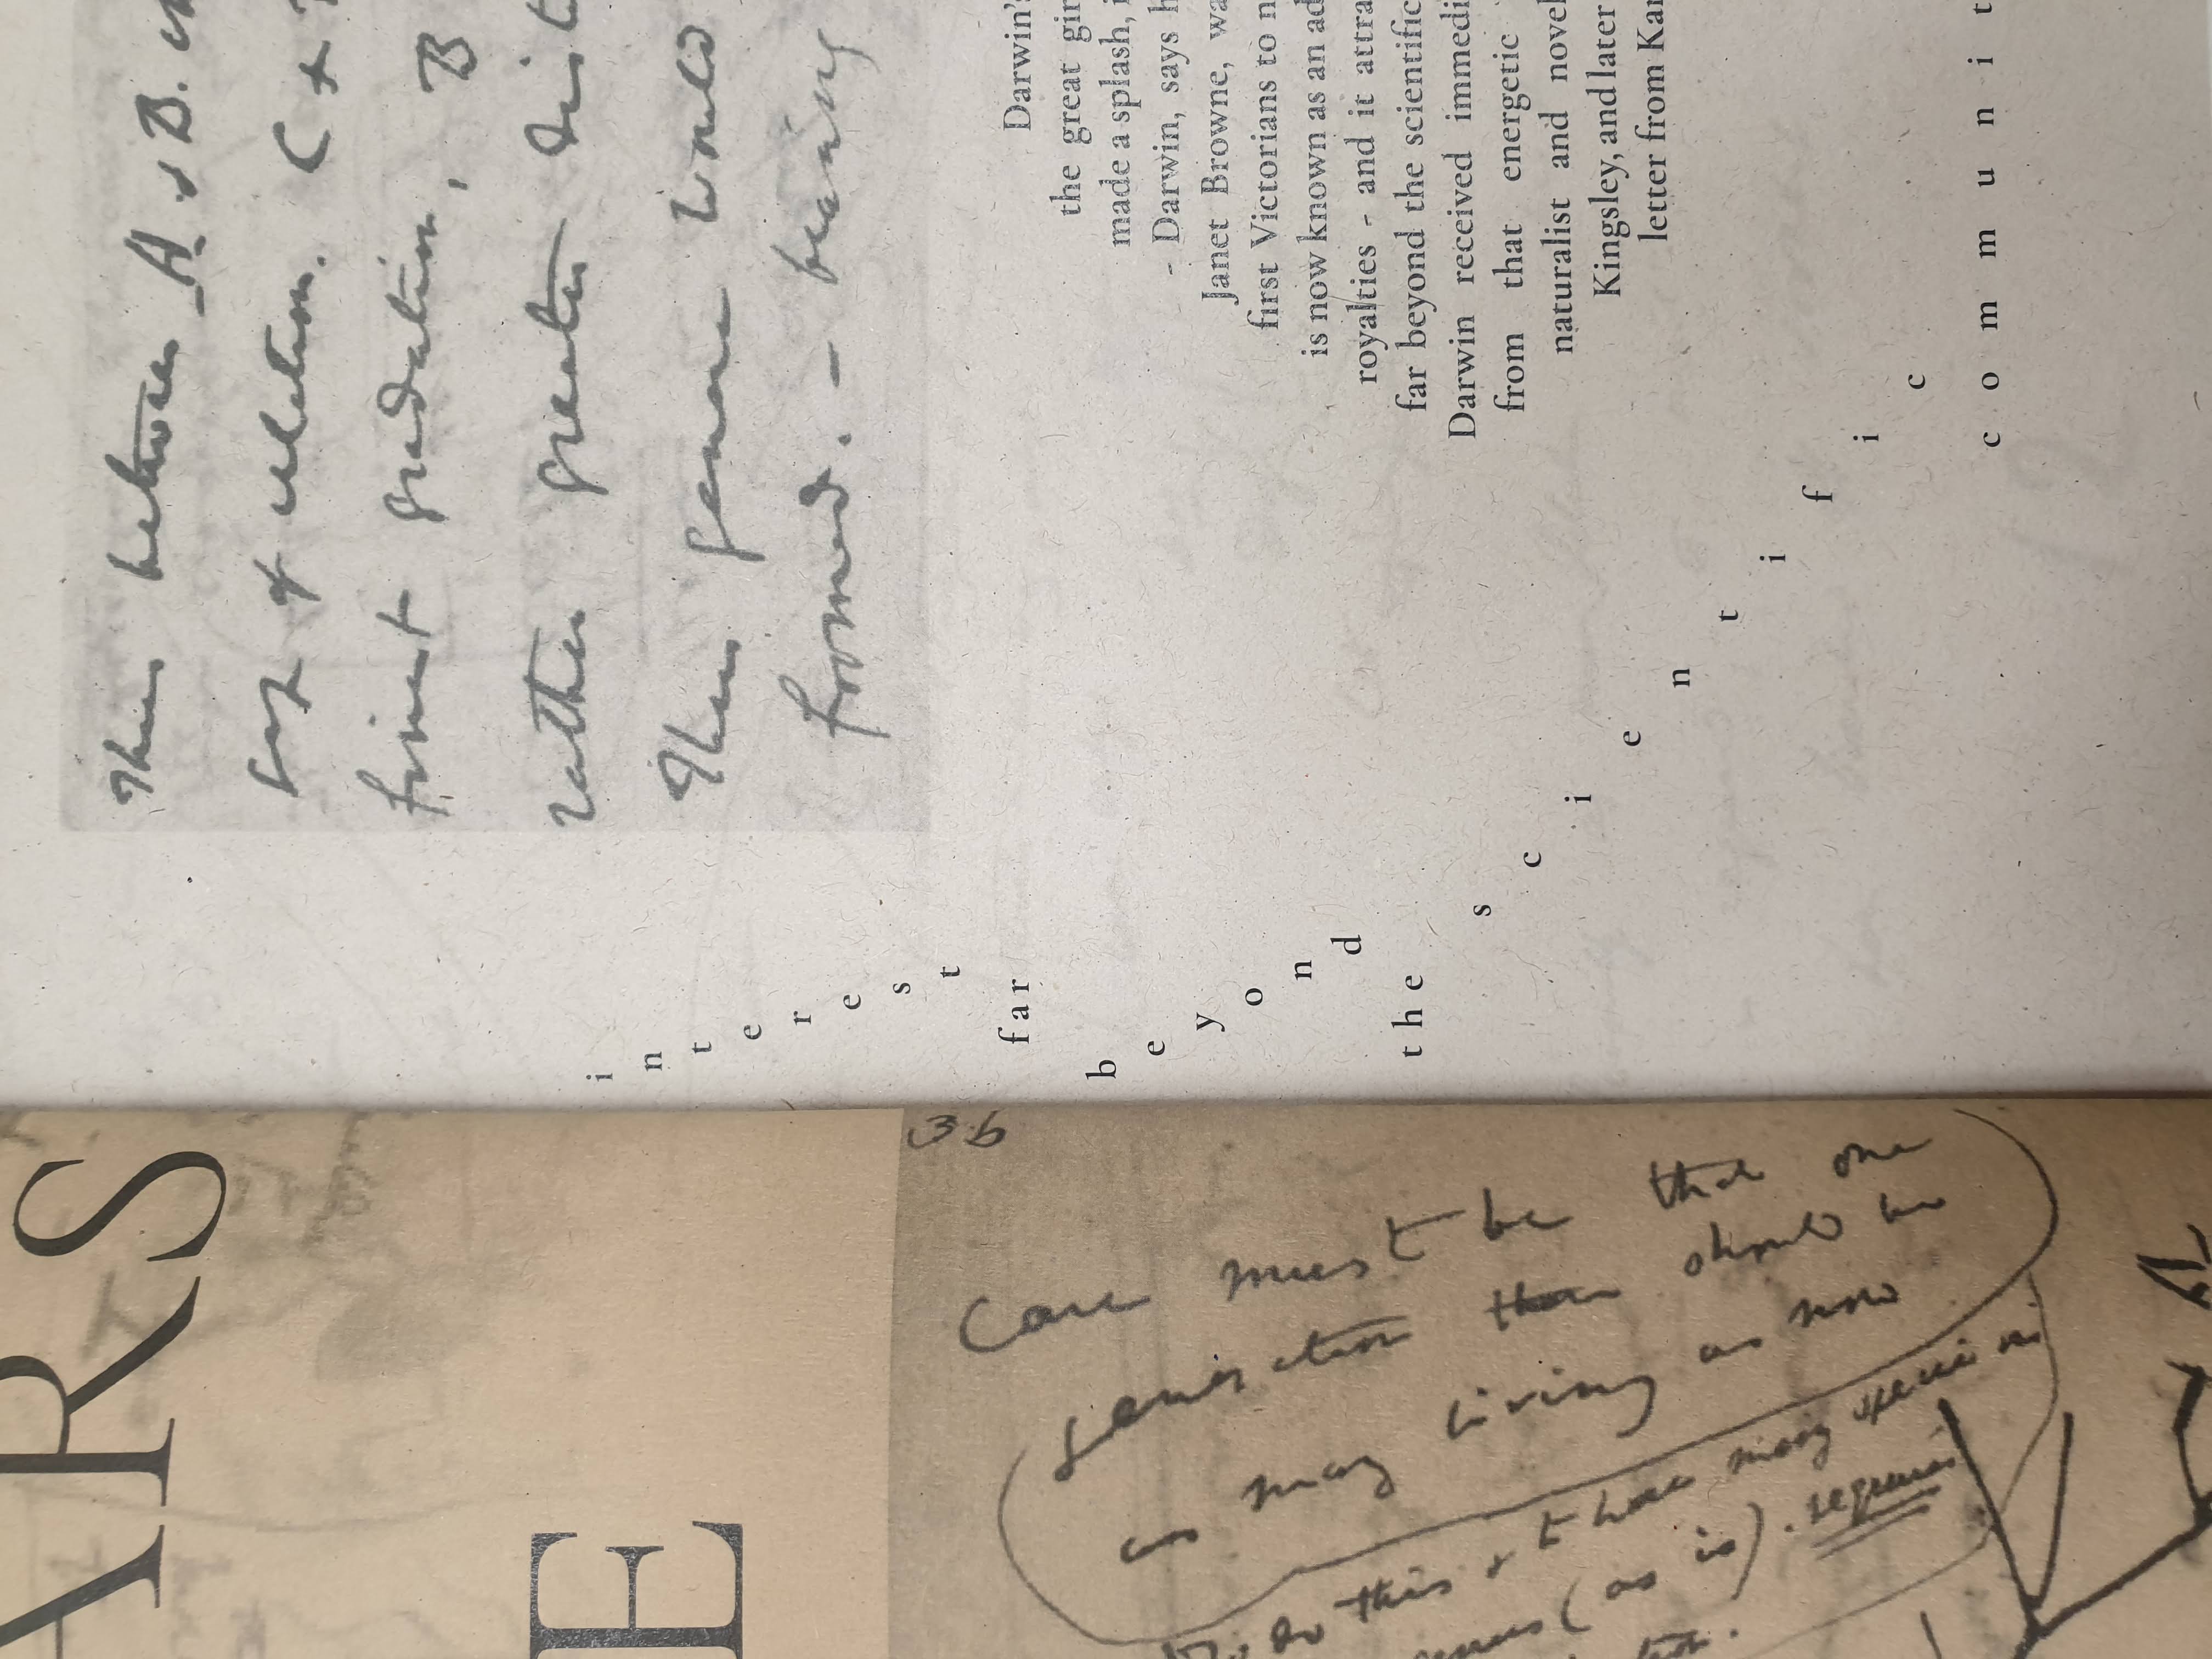 Thus between A. & B. im
sort of relation. C +
finest gradation, B
rather greater dist
Thus genera would
formed. — bearing
interest
far
beyond
the
scientific
communit
Darwin's
the great gir
made a splash, i
- Darwin, says h
Janet Browne, wa
first Victorians to n
is now known as an ad
royalties - and it attra
far beyond the scientific
Darwin received immedi
from that energetic
naturalist and novel
Kingsley, and later
letter from Kar
ARS
E
36
Case must be that one
generation then should be
as many living as now
To do this & to have many species in
genus (as is). requires